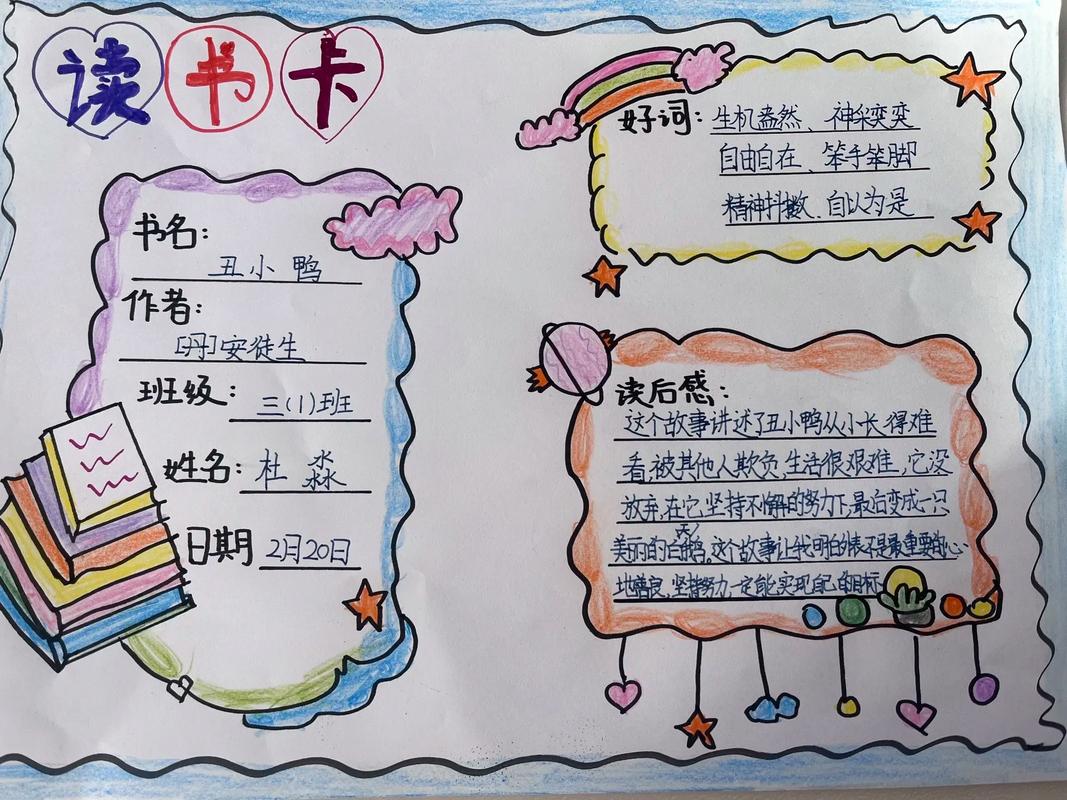 读书卡
书名：
丑小鸭
作者：
[丹]安徒生
班级：三(1)班
姓名：杜淼
日期 2月20日
好词：生机盎然、神采奕奕
自由自在、笨手笨脚
精神抖擞、自以为是
读后感：
这个故事讲述了丑小鸭从小长得难
看,被其他人欺负,生活很艰难,它没
放弃,在它坚持不懈的努力下,最后变成一只
美丽的白天鹅。这个故事让我明白外表不是最重要的,心
地善良,坚持努力一定能实现自己的目标